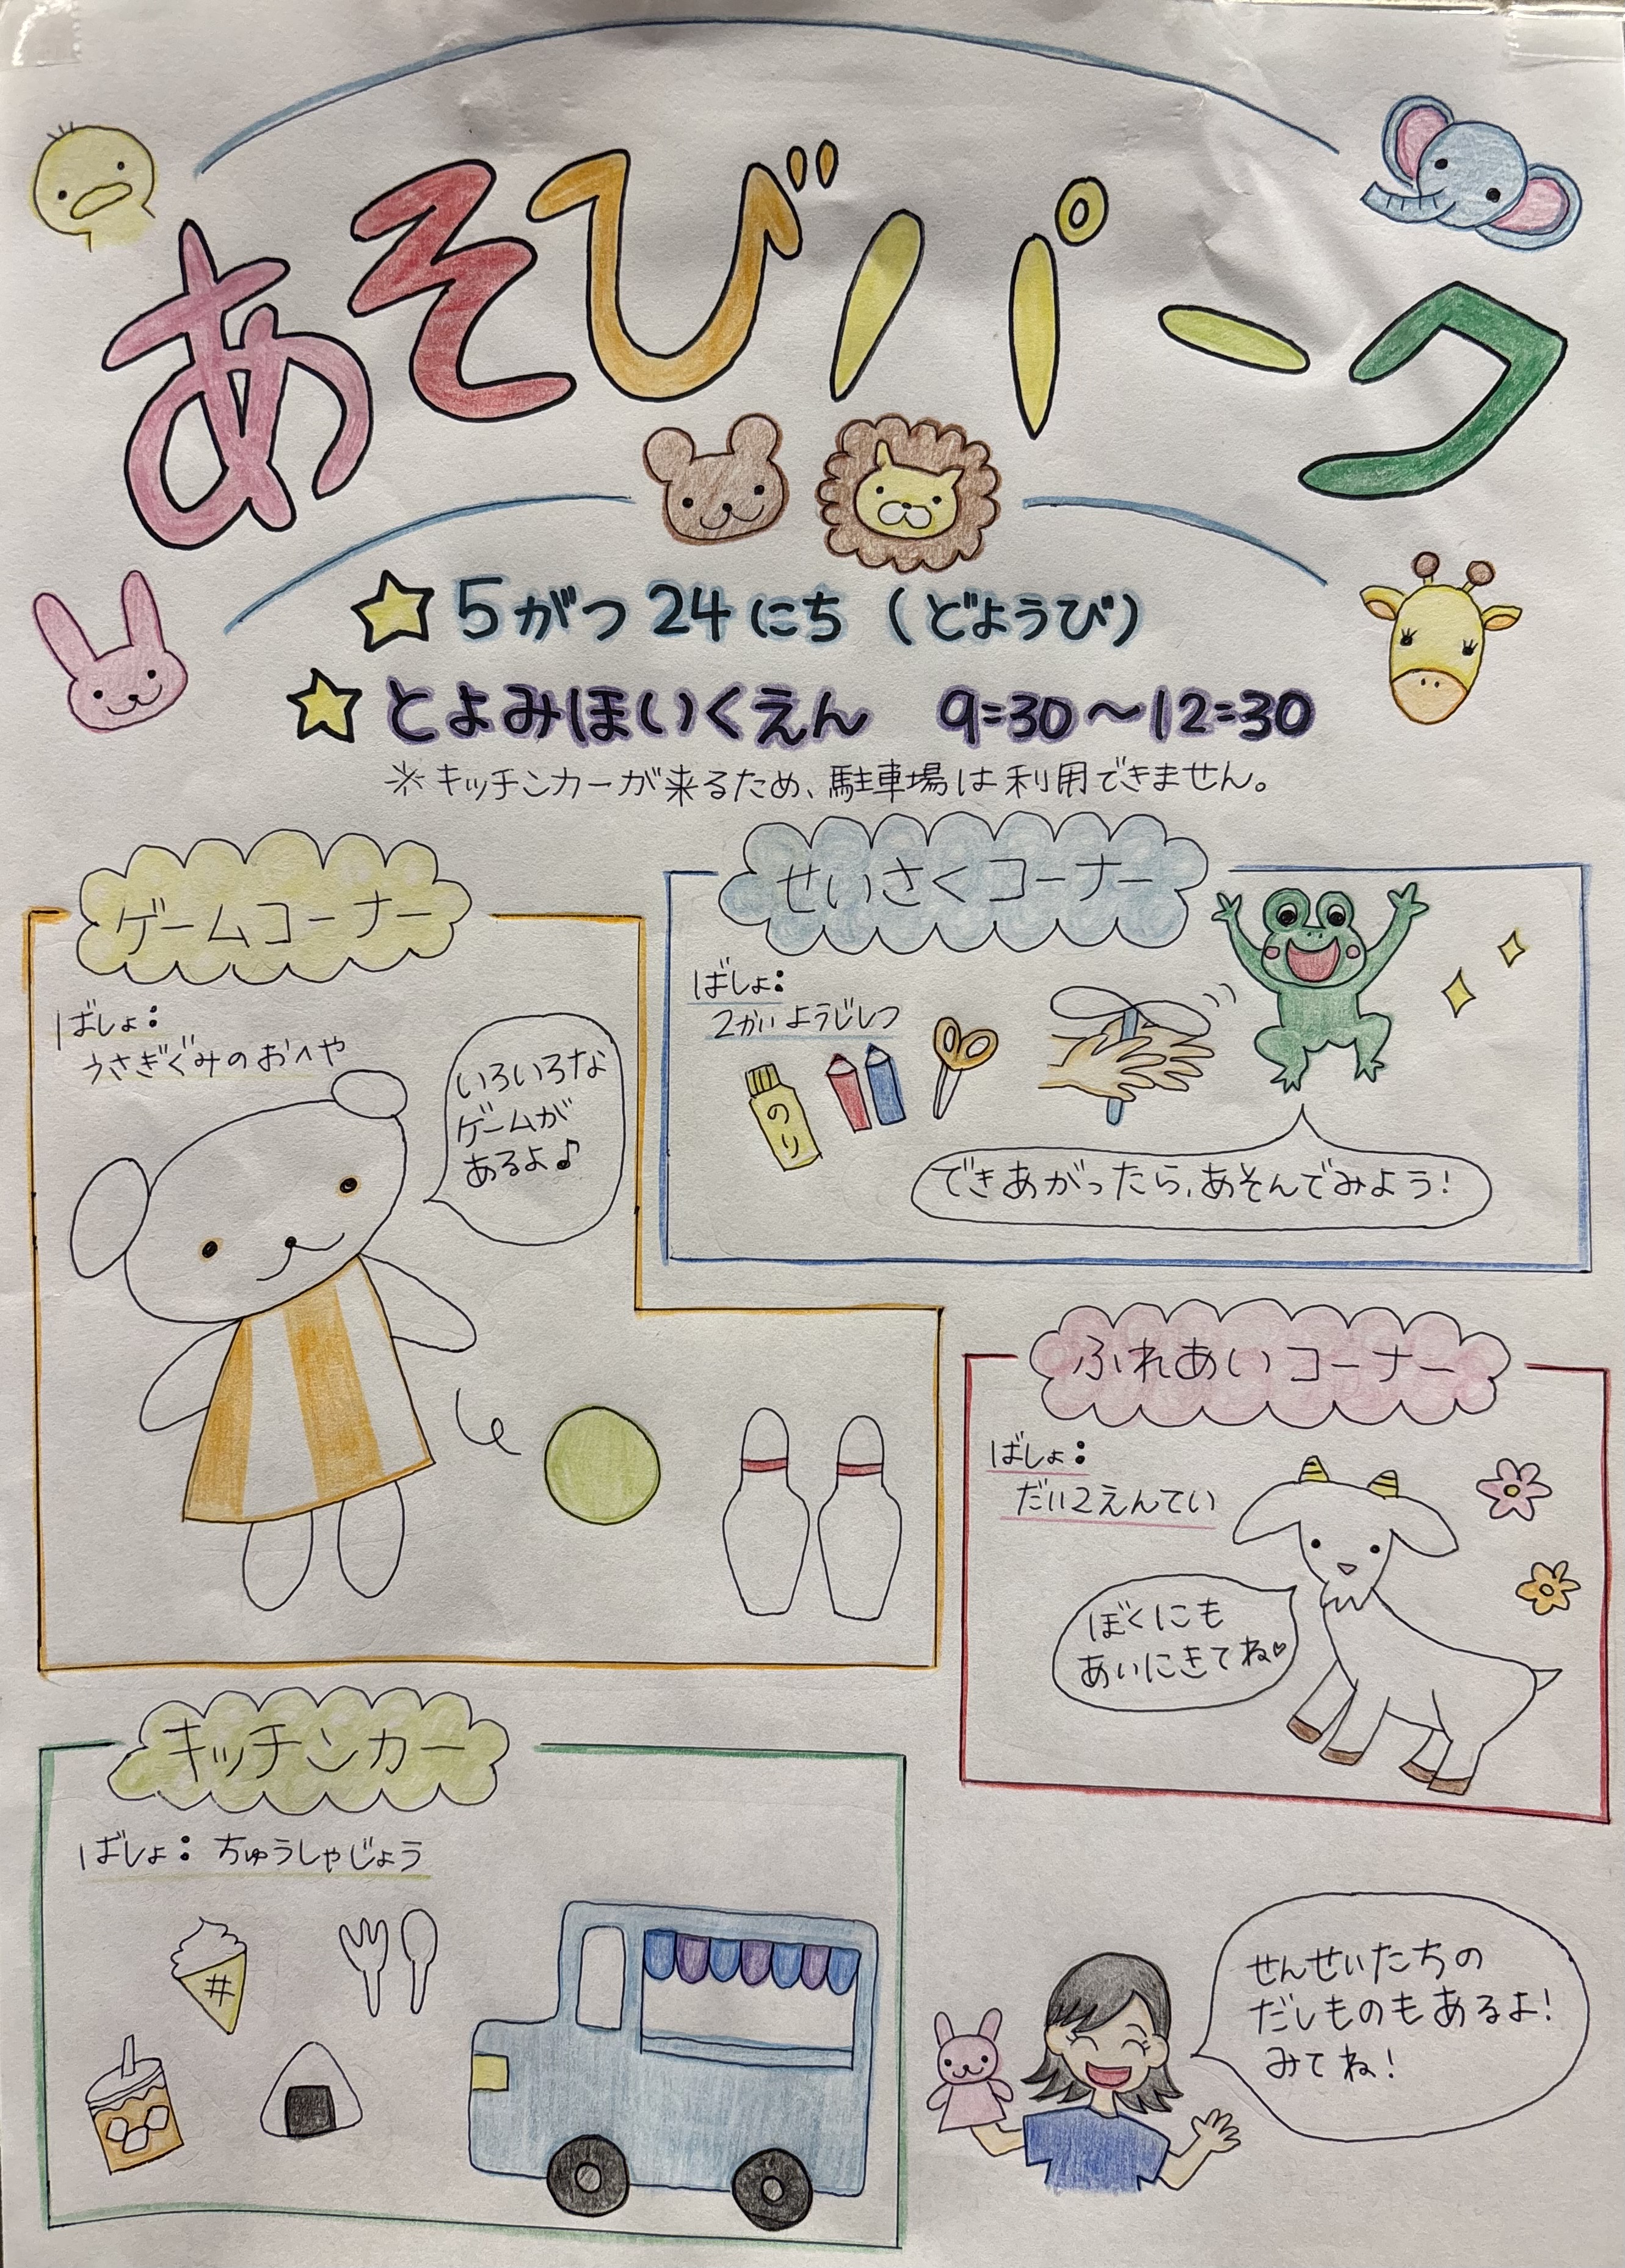 あそびパーク
☆5がつ24にち（どようび）
☆とよみほいくえん 9:30〜12:30
※キッチンカーが来るため、駐車場は利用できません。
ゲームコーナー
ばしょ：
うさぎぐみのおへや
いろいろな
ゲームが
あるよ♪
せいさくコーナー
ばしょ：
2かいようじしつ
のり
できあがったら、あそんでみよう！
ふれあいコーナー
ばしょ：
だい2えんてい
ぼくにも
あいにきてね♡
キッチンカー
ばしょ：ちゅうしゃじょう
せんせいたちの
だしものもあるよ！
みてね！